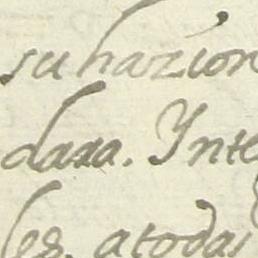 su hazion
dara. Ynte
les. a todas